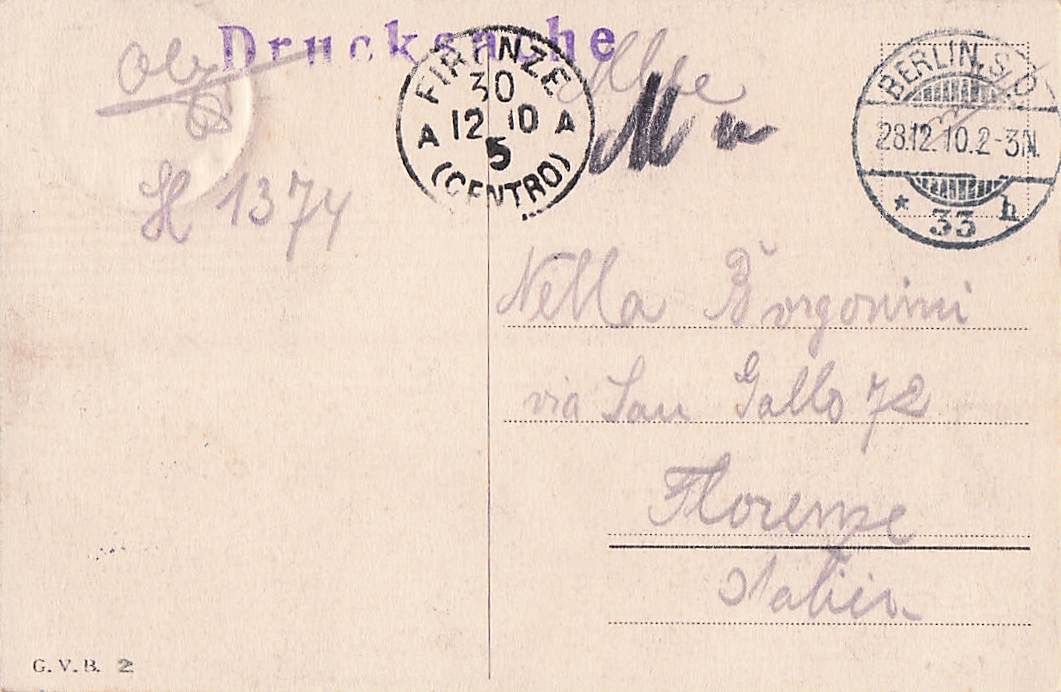 Drucksache
FIRENZE
30
12 10
A A
5
(CENTRO)
BERLIN, S.O.
28.12.10.2-3N.
* 33 h
H 1374
Nella Borgonini
via San Gallo 72
Florenze
Italien
G. V. B. 2